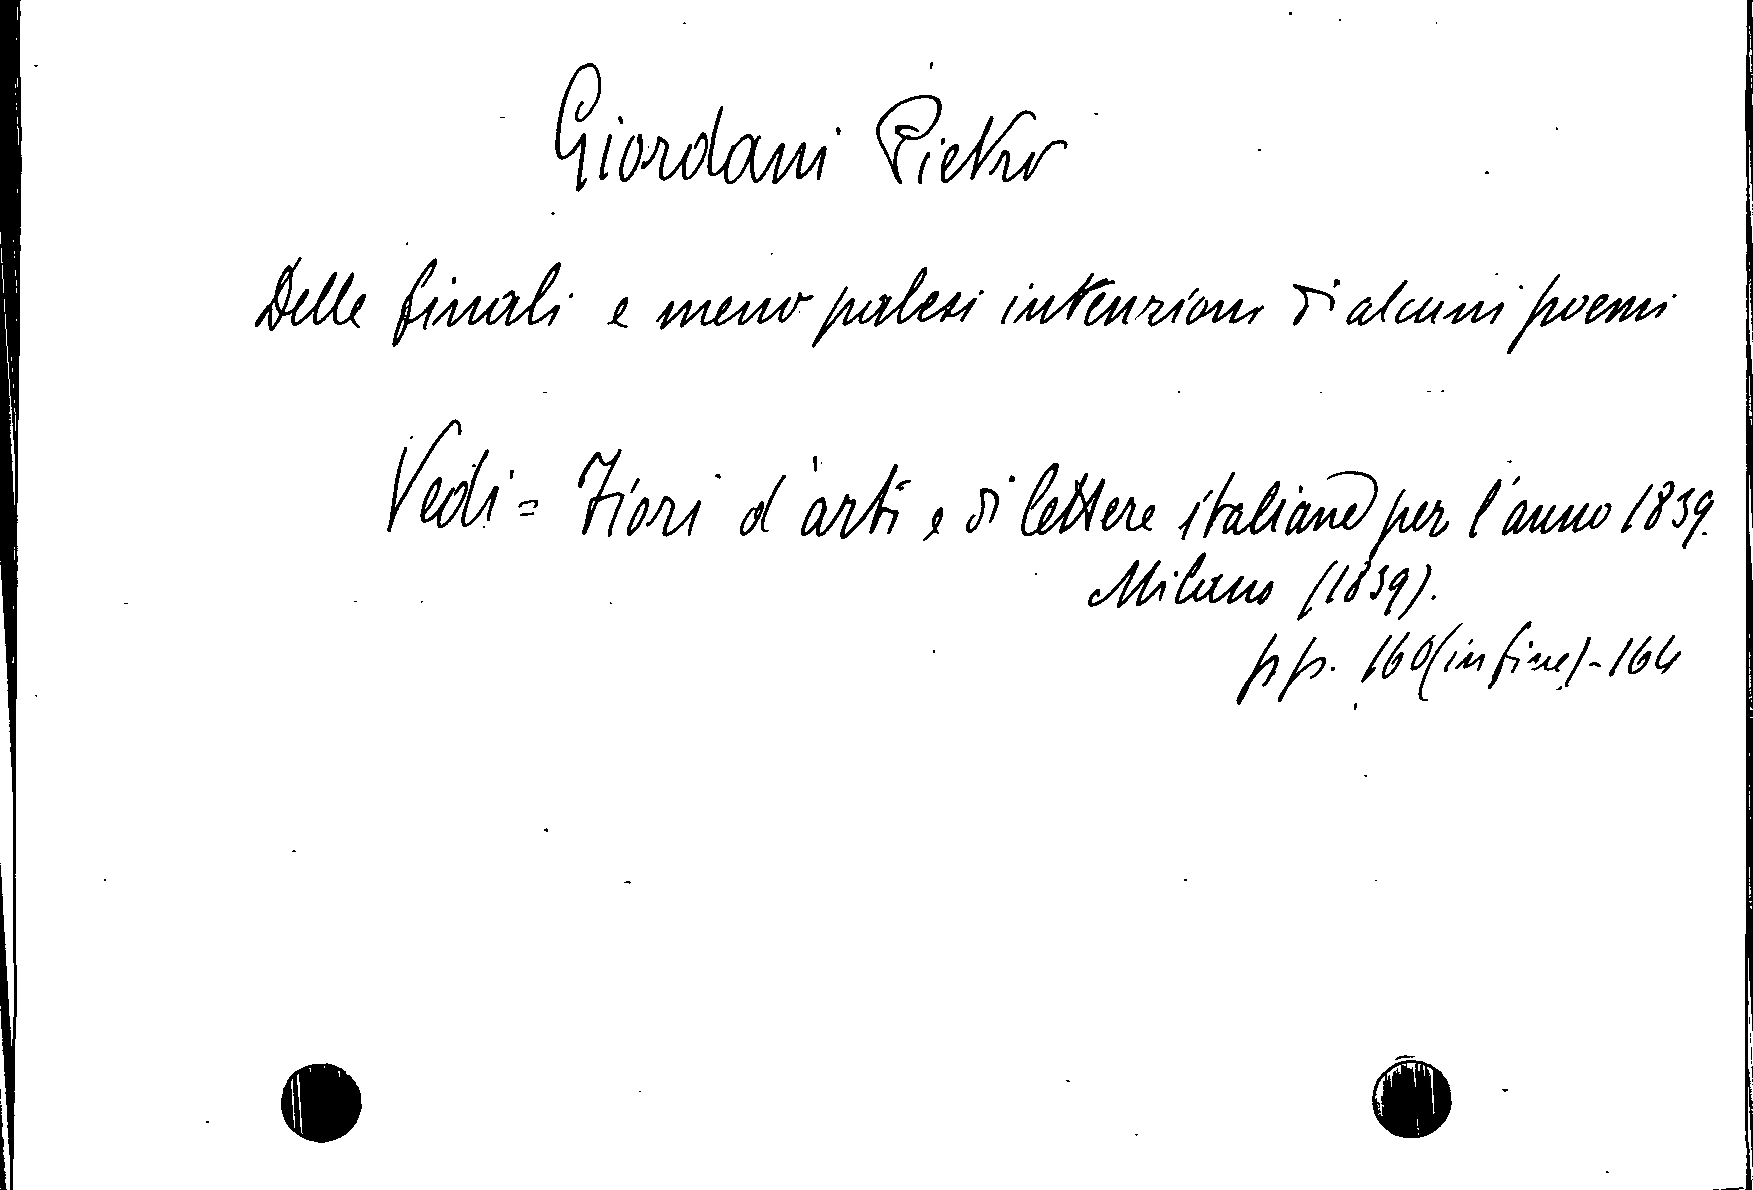 Giordani Pietro
Delle finali e meno palesi intenzioni di alcuni poemi
Vedi = Fiori d'arti e di lettere italiane per l'anno 1839.
Milano (1839).
pp. 160 (in fine) - 164